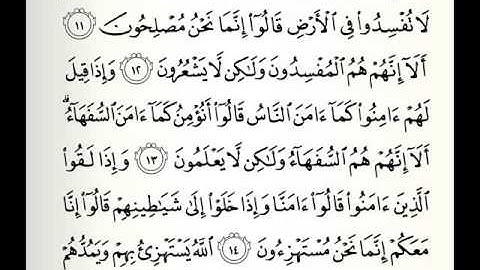 لَا تُفْسِدُوا۟ فِى ٱلْأَرْضِ قَالُوٓا۟ إِنَّمَا نَحْنُ مُصْلِحُونَ ١١
أَلَآ إِنَّهُمْ هُمُ ٱلْمُفْسِدُونَ وَلَٰكِن لَّا يَشْعُرُونَ ١٢ وَإِذَا قِيلَ
لَهُمْ ءَامِنُوا۟ كَمَآ ءَامَنَ ٱلنَّاسُ قَالُوٓا۟ أَنُؤْمِنُ كَمَآ ءَامَنَ ٱلسُّفَهَآءُ ۗ
أَلَآ إِنَّهُمْ هُمُ ٱلسُّفَهَآءُ وَلَٰكِن لَّا يَعْلَمُونَ ١٣ وَإِذَا لَقُوا۟
ٱلَّذِينَ ءَامَنُوا۟ قَالُوٓا۟ ءَامَنَّا وَإِذَا خَلَوْا۟ إِلَىٰ شَيَٰطِينِهِمْ قَالُوٓا۟ إِنَّا
مَعَكُمْ إِنَّمَا نَحْنُ مُسْتَهْزِءُونَ ١٤ ٱللَّهُ يَسْتَهْزِئُ بِهِمْ وَيَمُدُّهُمْ